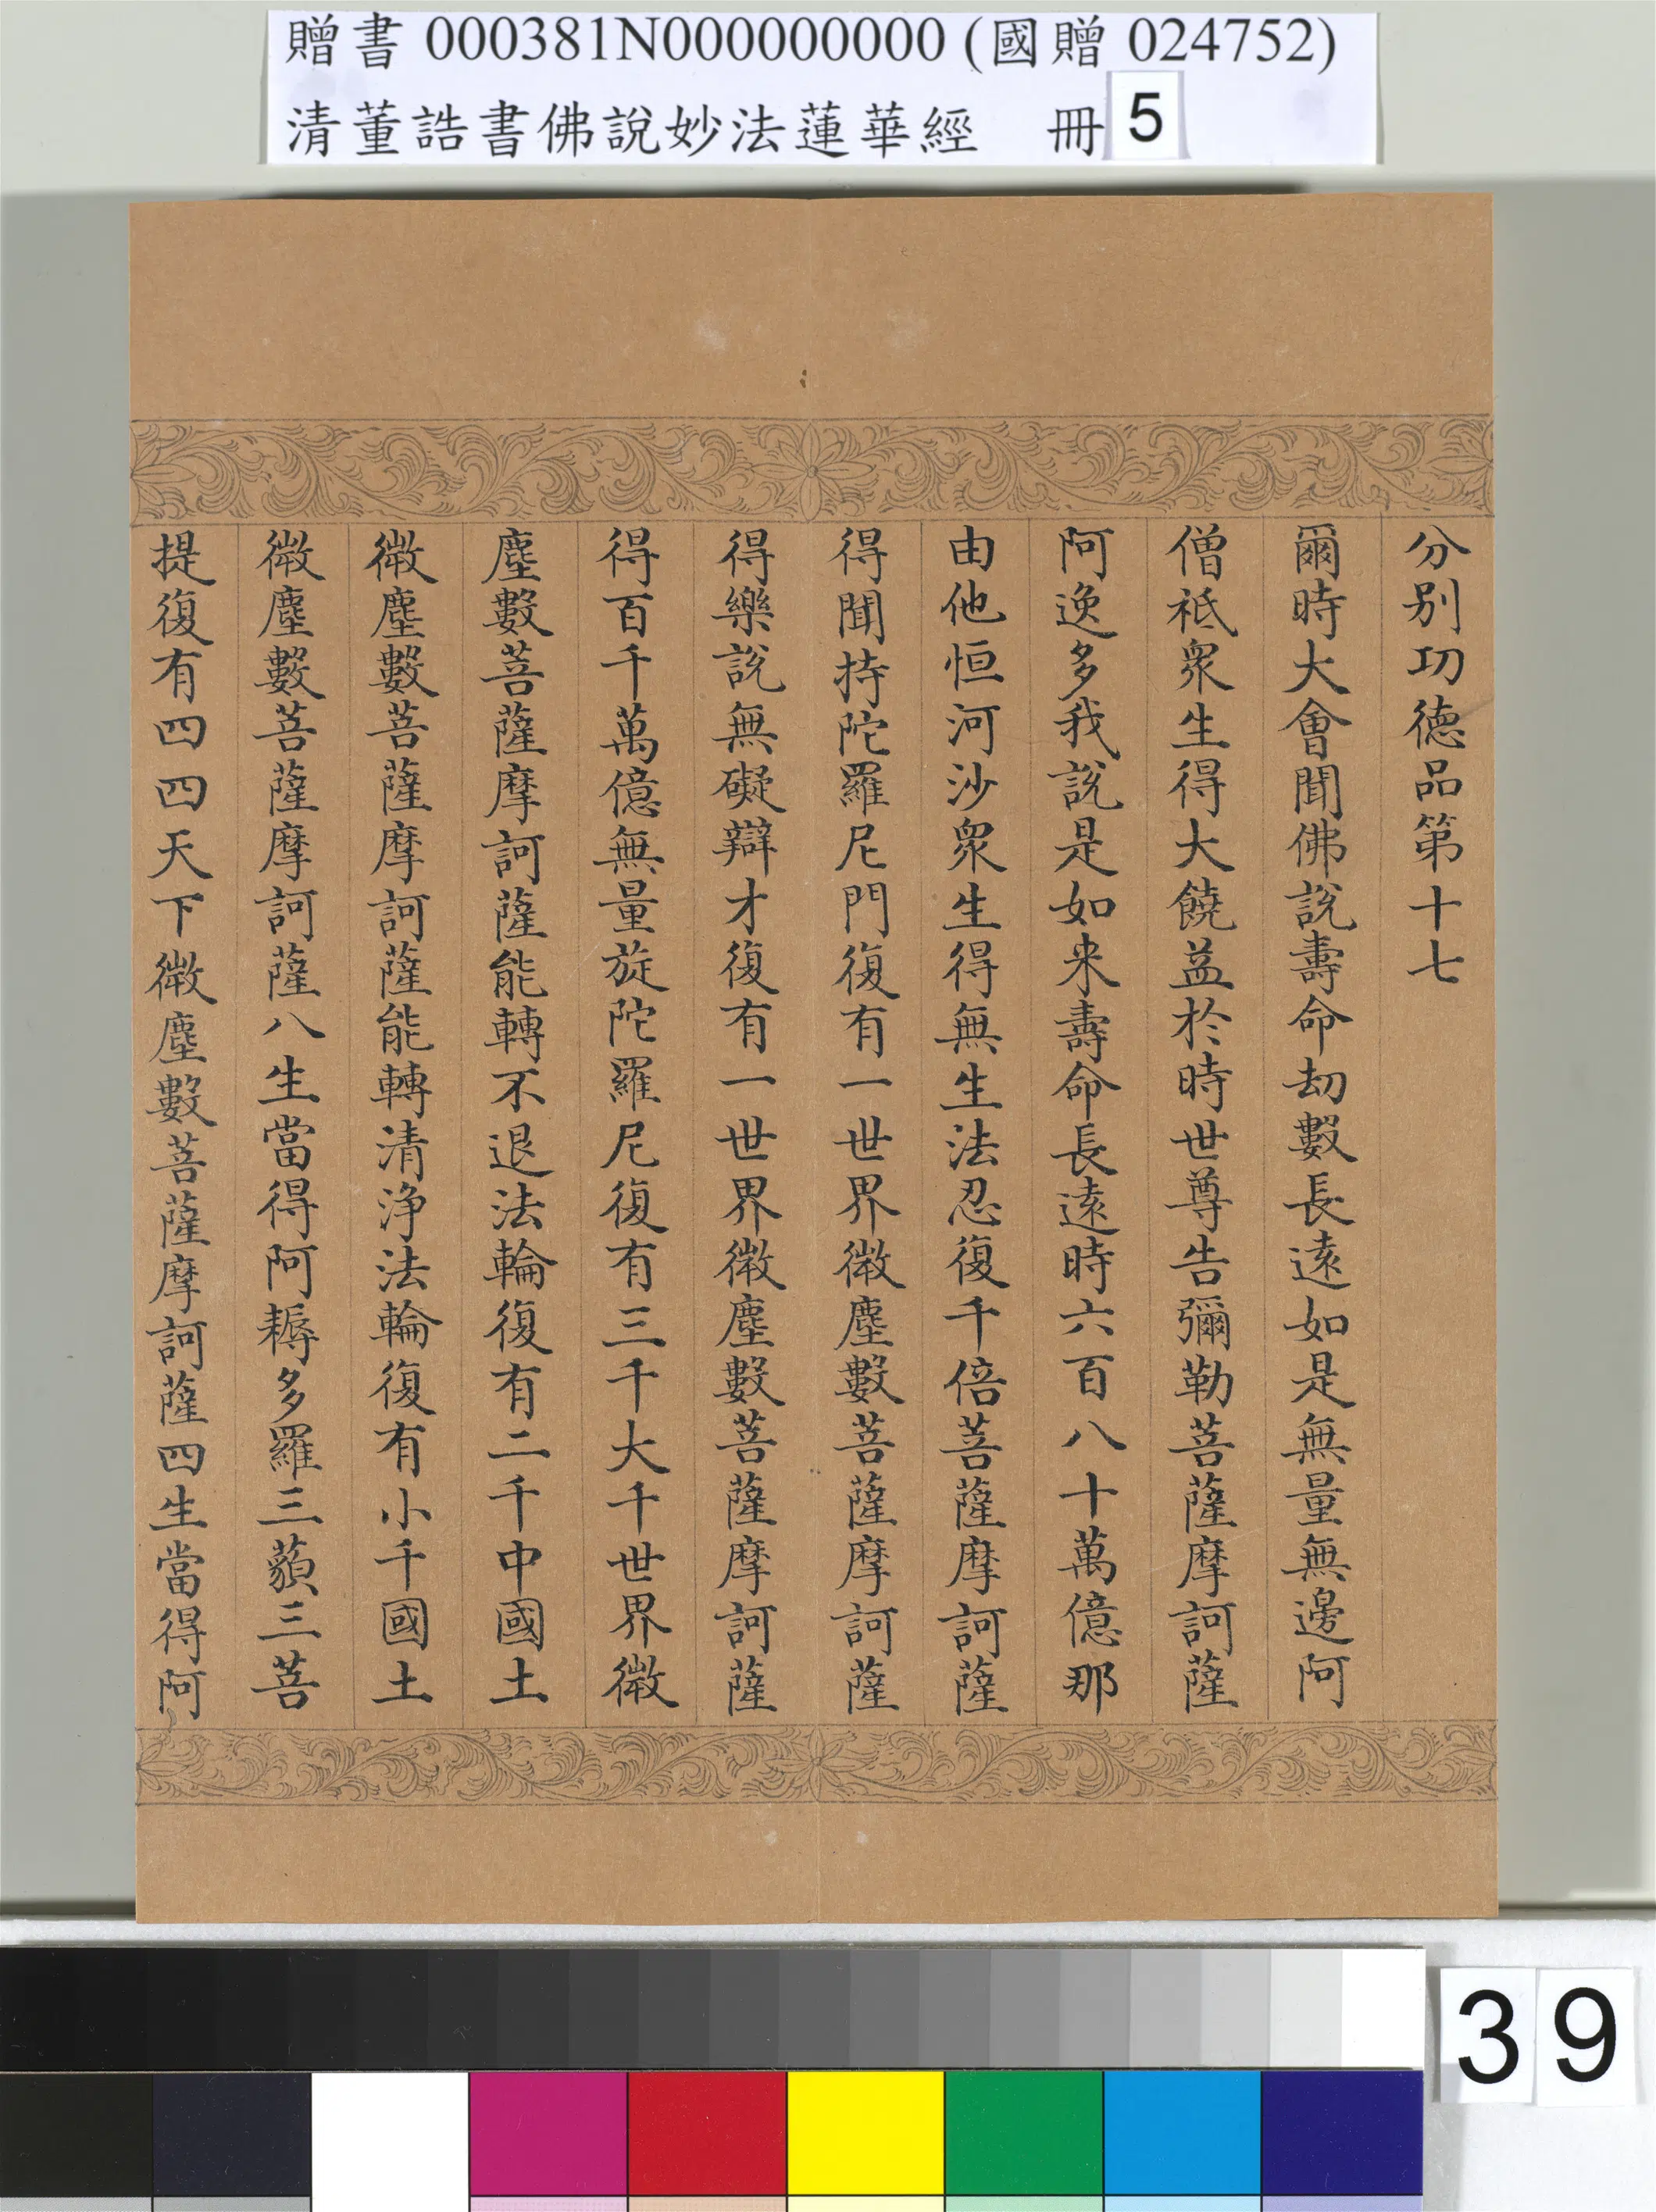 贈書 000381N000000000 (國贈 024752)
清董誥書佛說妙法蓮華經 冊 5
分別功德品第十七
爾時大會聞佛說壽命劫數長遠如是無量無邊阿
僧祇眾生得大饒益於時世尊告彌勒菩薩摩訶薩
阿逸多我說是如来壽命長遠時六百八十萬億那
由他恒河沙眾生得無生法忍復千倍菩薩摩訶薩
得聞持陀羅尼門復有一世界微塵數菩薩摩訶薩
得樂說無礙辯才復有一世界微塵數菩薩摩訶薩
得百千萬億無量旋陀羅尼復有三千大千世界微
塵數菩薩摩訶薩能轉不退法輪復有二千中國土
微塵數菩薩摩訶薩能轉清淨法輪復有小千國土
微塵數菩薩摩訶薩八生當得阿耨多羅三藐三菩
提復有四四天下微塵數菩薩摩訶薩四生當得阿
39